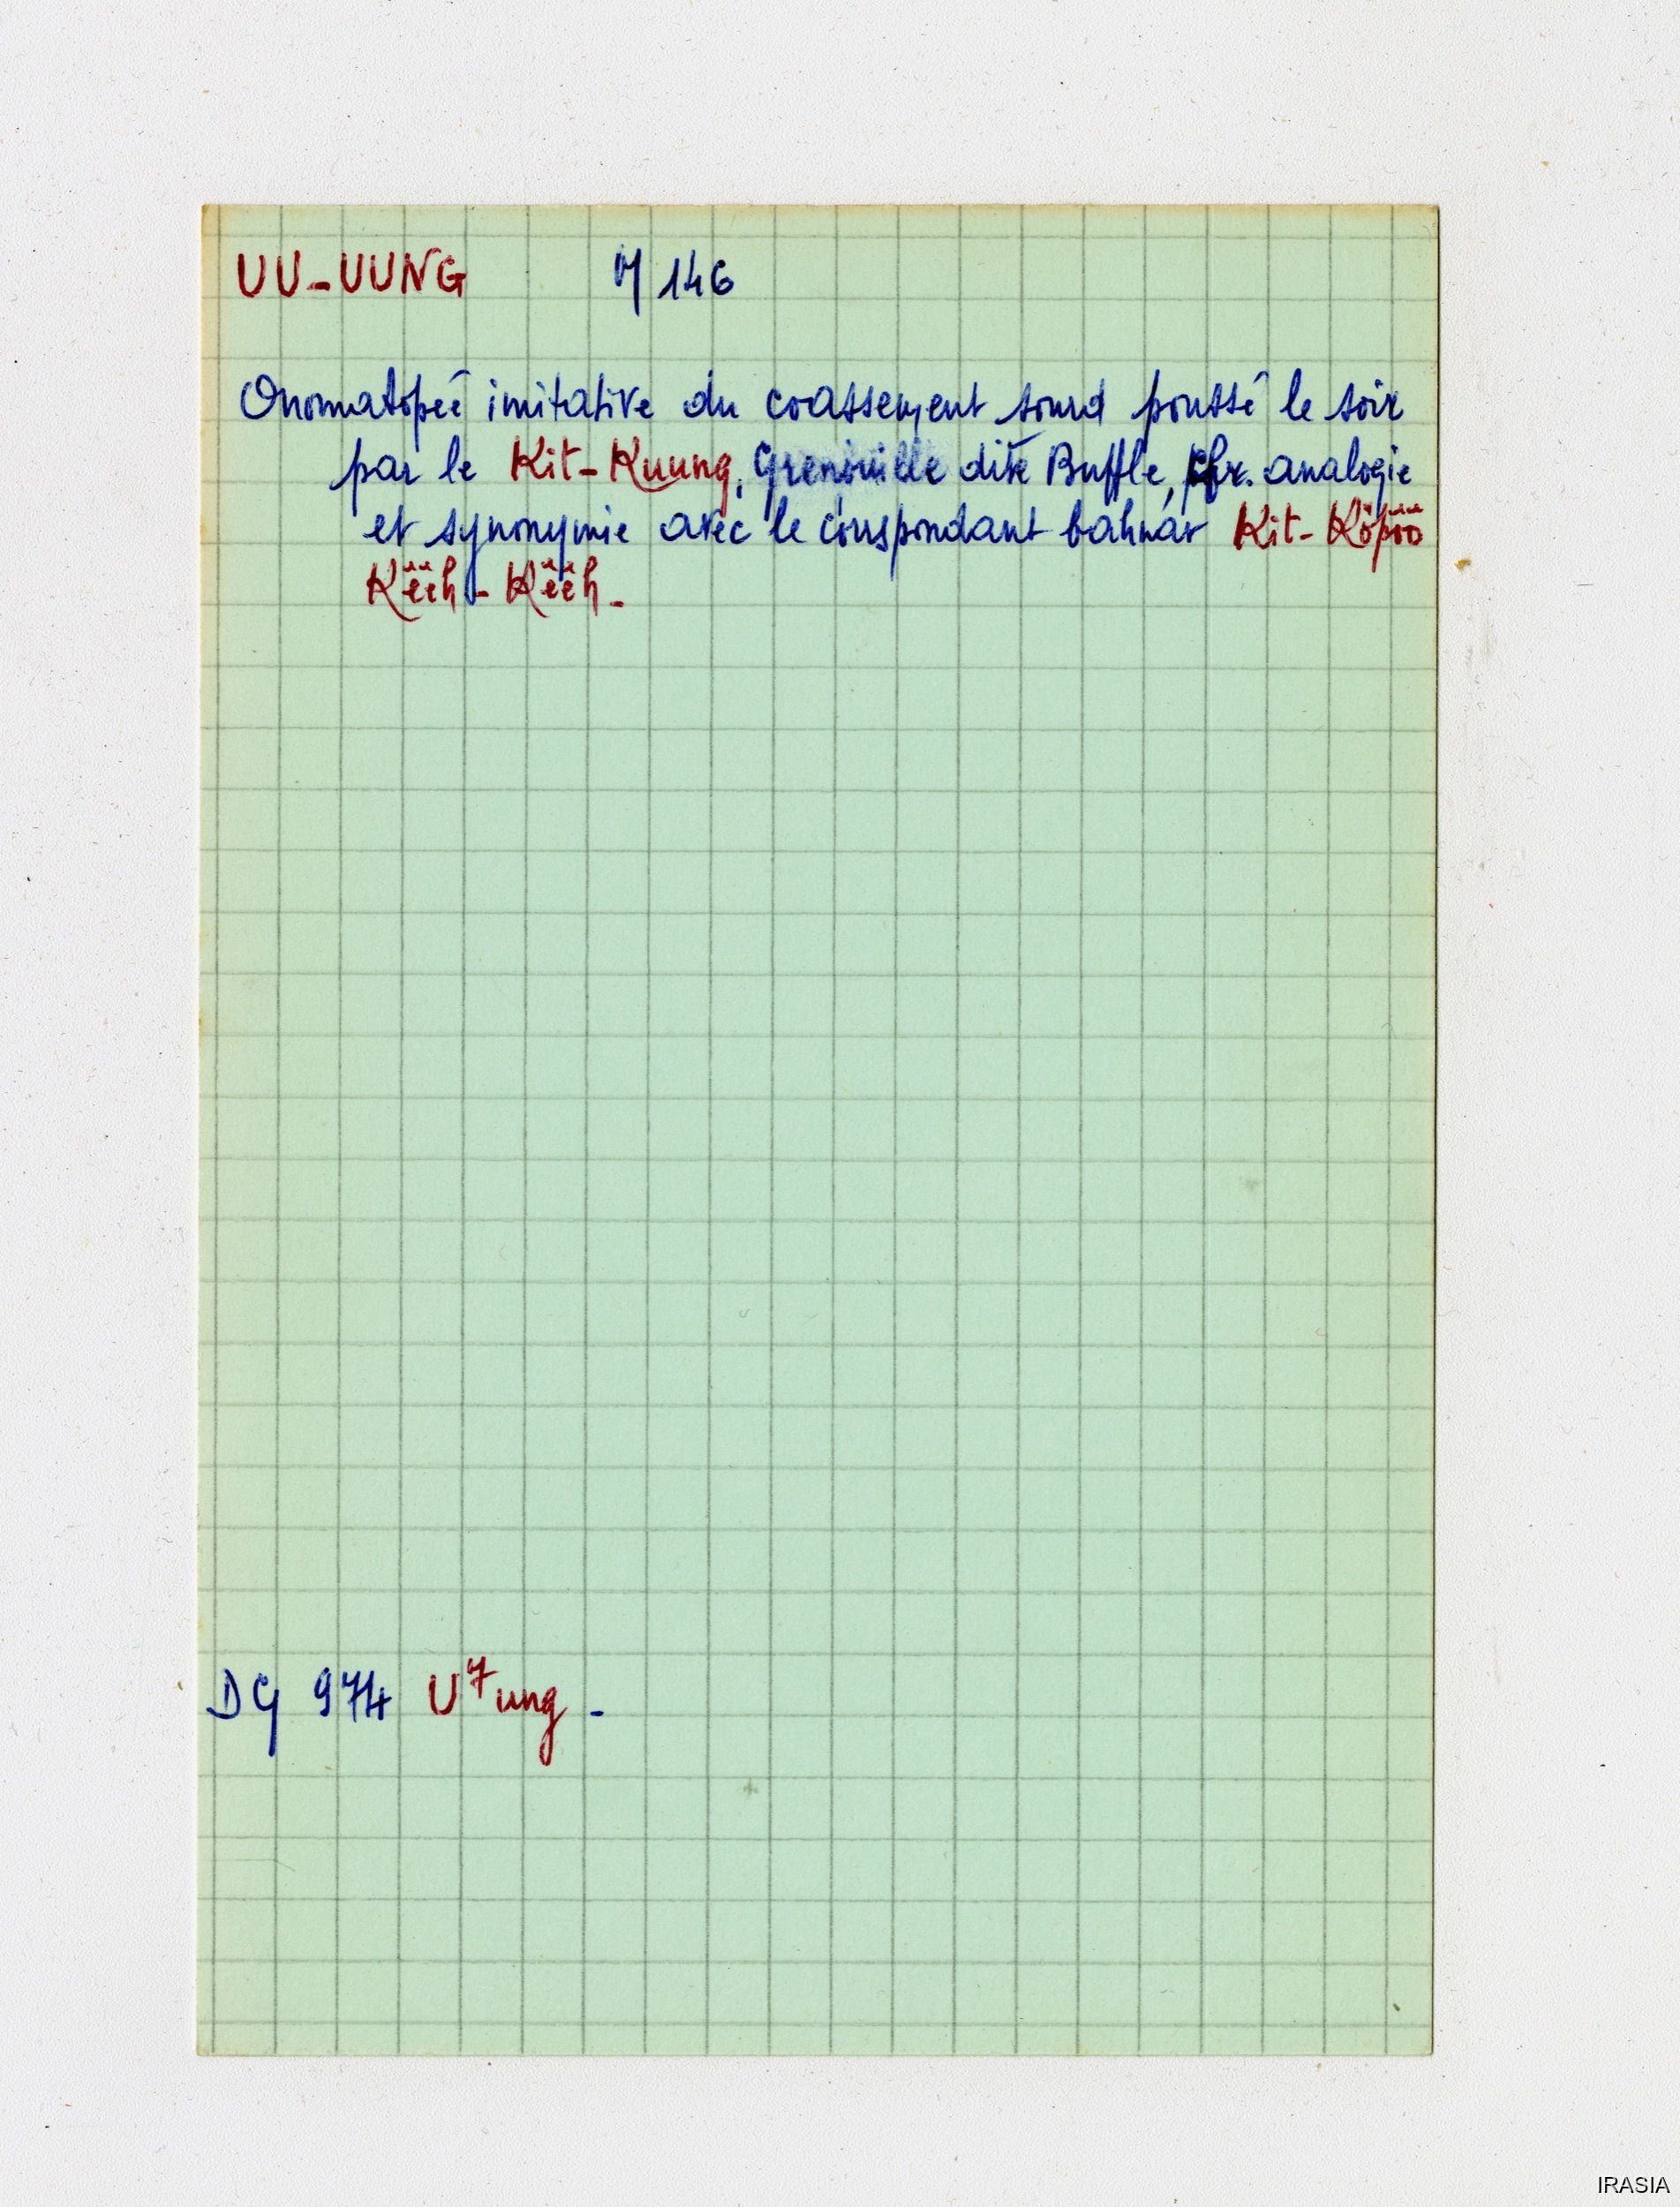 UU-UUNG 146
Onomatopée imitative du coassement sourd poussé le soir
par le Kit-Kuung, Grenouille dite Buffle, cfr. analogie
et synonymie avec le correspondant bahnar Kit-Köpöö
Këëh-Këëh-
DG 974 U7ung -
IRASIA